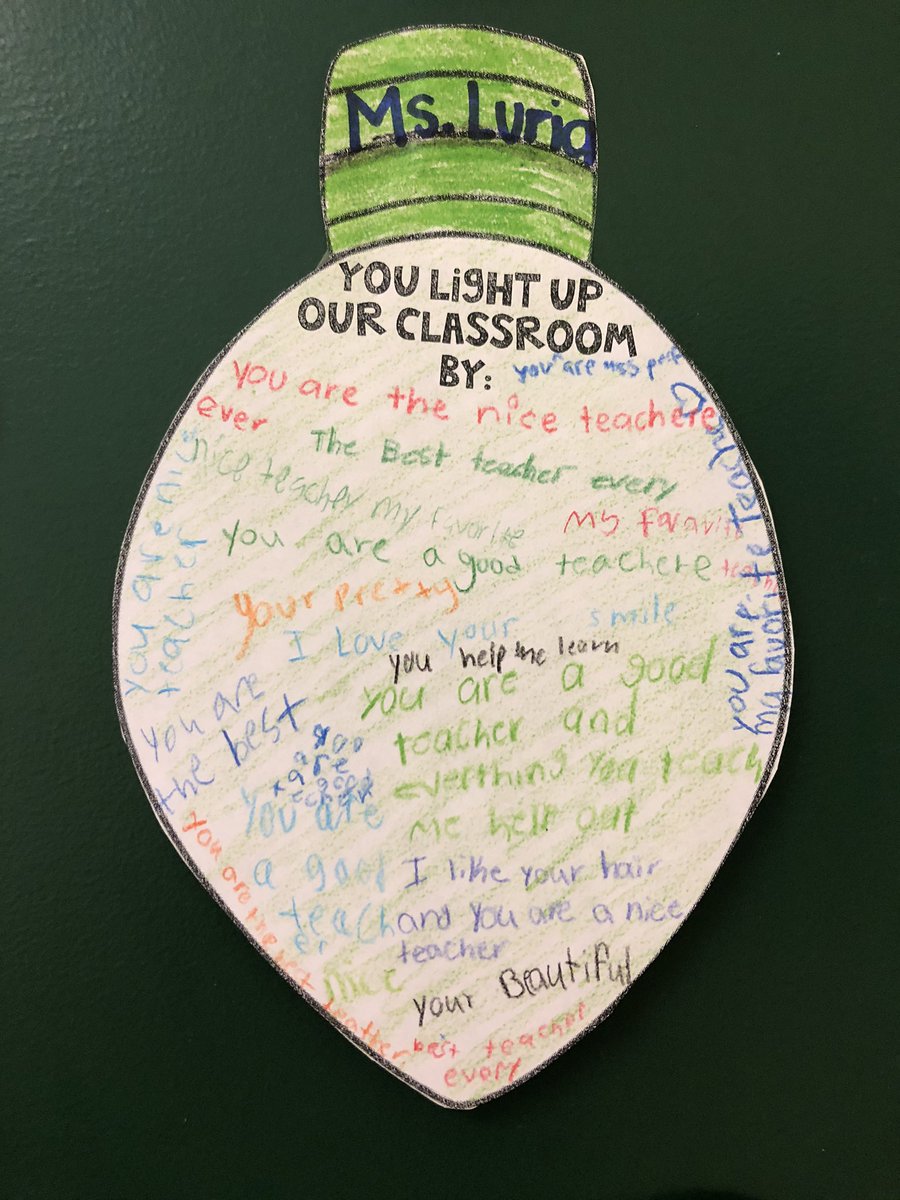 Ms. Luria
YOU LiGHT UP
OUR CLASSROOM
BY:
you are
You are the nice teachere
ever
The Best teacher every
nice teacher my favorite
My favorite
you are a good teachere
your pretty
I Love your smile
you help me learn
you are nice
teacher
you are
my favorite teacher
you are
the best
you are a good
teacher and
everthing you teach
me help out
you
are
a good
You are
a good
teach
er
I like your hair
and you are a nice
teacher
you are the best
nice
your Beautiful
best teacher
every